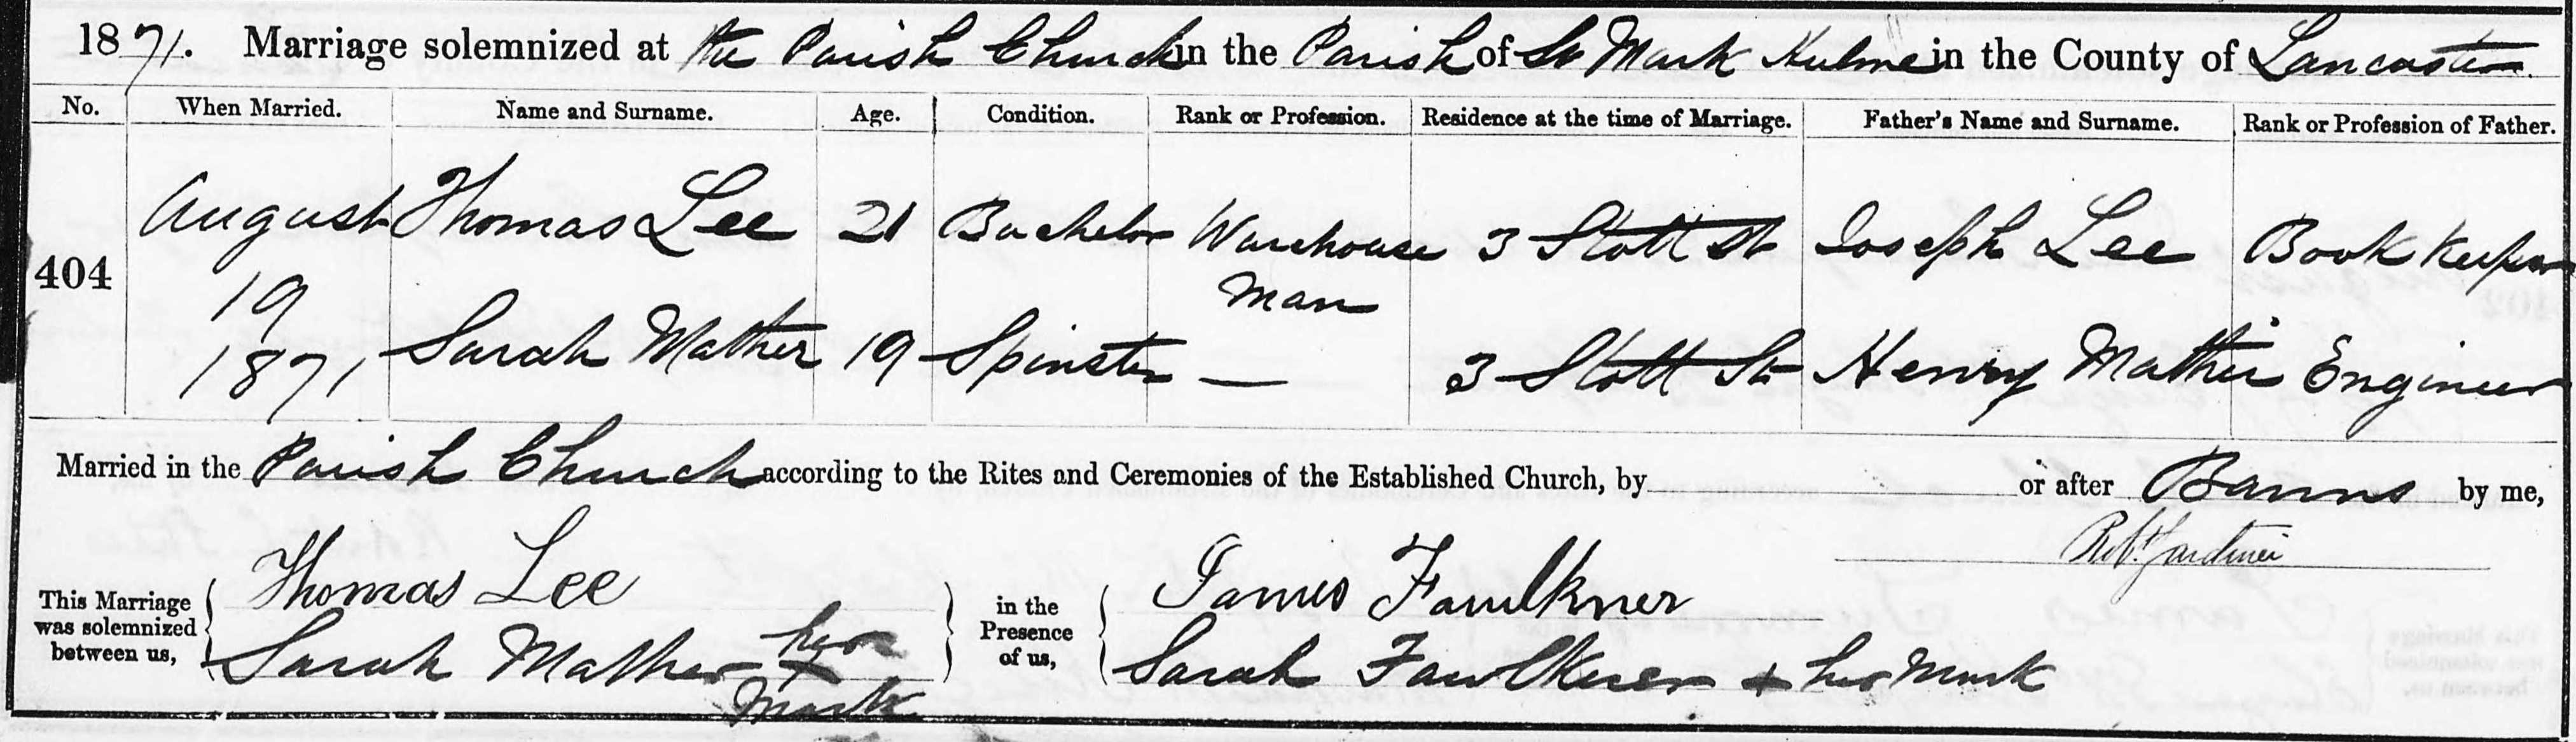 1871. Marriage solemnized at the Parish Church in the Parish of St Mark Hulme in the County of Lancaster.
No. When Married. Name and Surname. Age. Condition. Rank or Profession. Residence at the time of Marriage. Father's Name and Surname. Rank or Profession of Father.
404 August 19 1871 Thomas Lee 21 Bachelor Warehouse Man 3 Stott St Joseph Lee Book Keeper
Sarah Mather 19 Spinster — 3 Stott St Henry Mather Engineer
Married in the Parish Church according to the Rites and Ceremonies of the Established Church, by or after Banns by me,
Robt Gardiner
This Marriage was solemnized between us, { Thomas Lee } in the Presence of us, { James Faulkner
Sarah Mather her X Mark Sarah Faulkner + her Mark